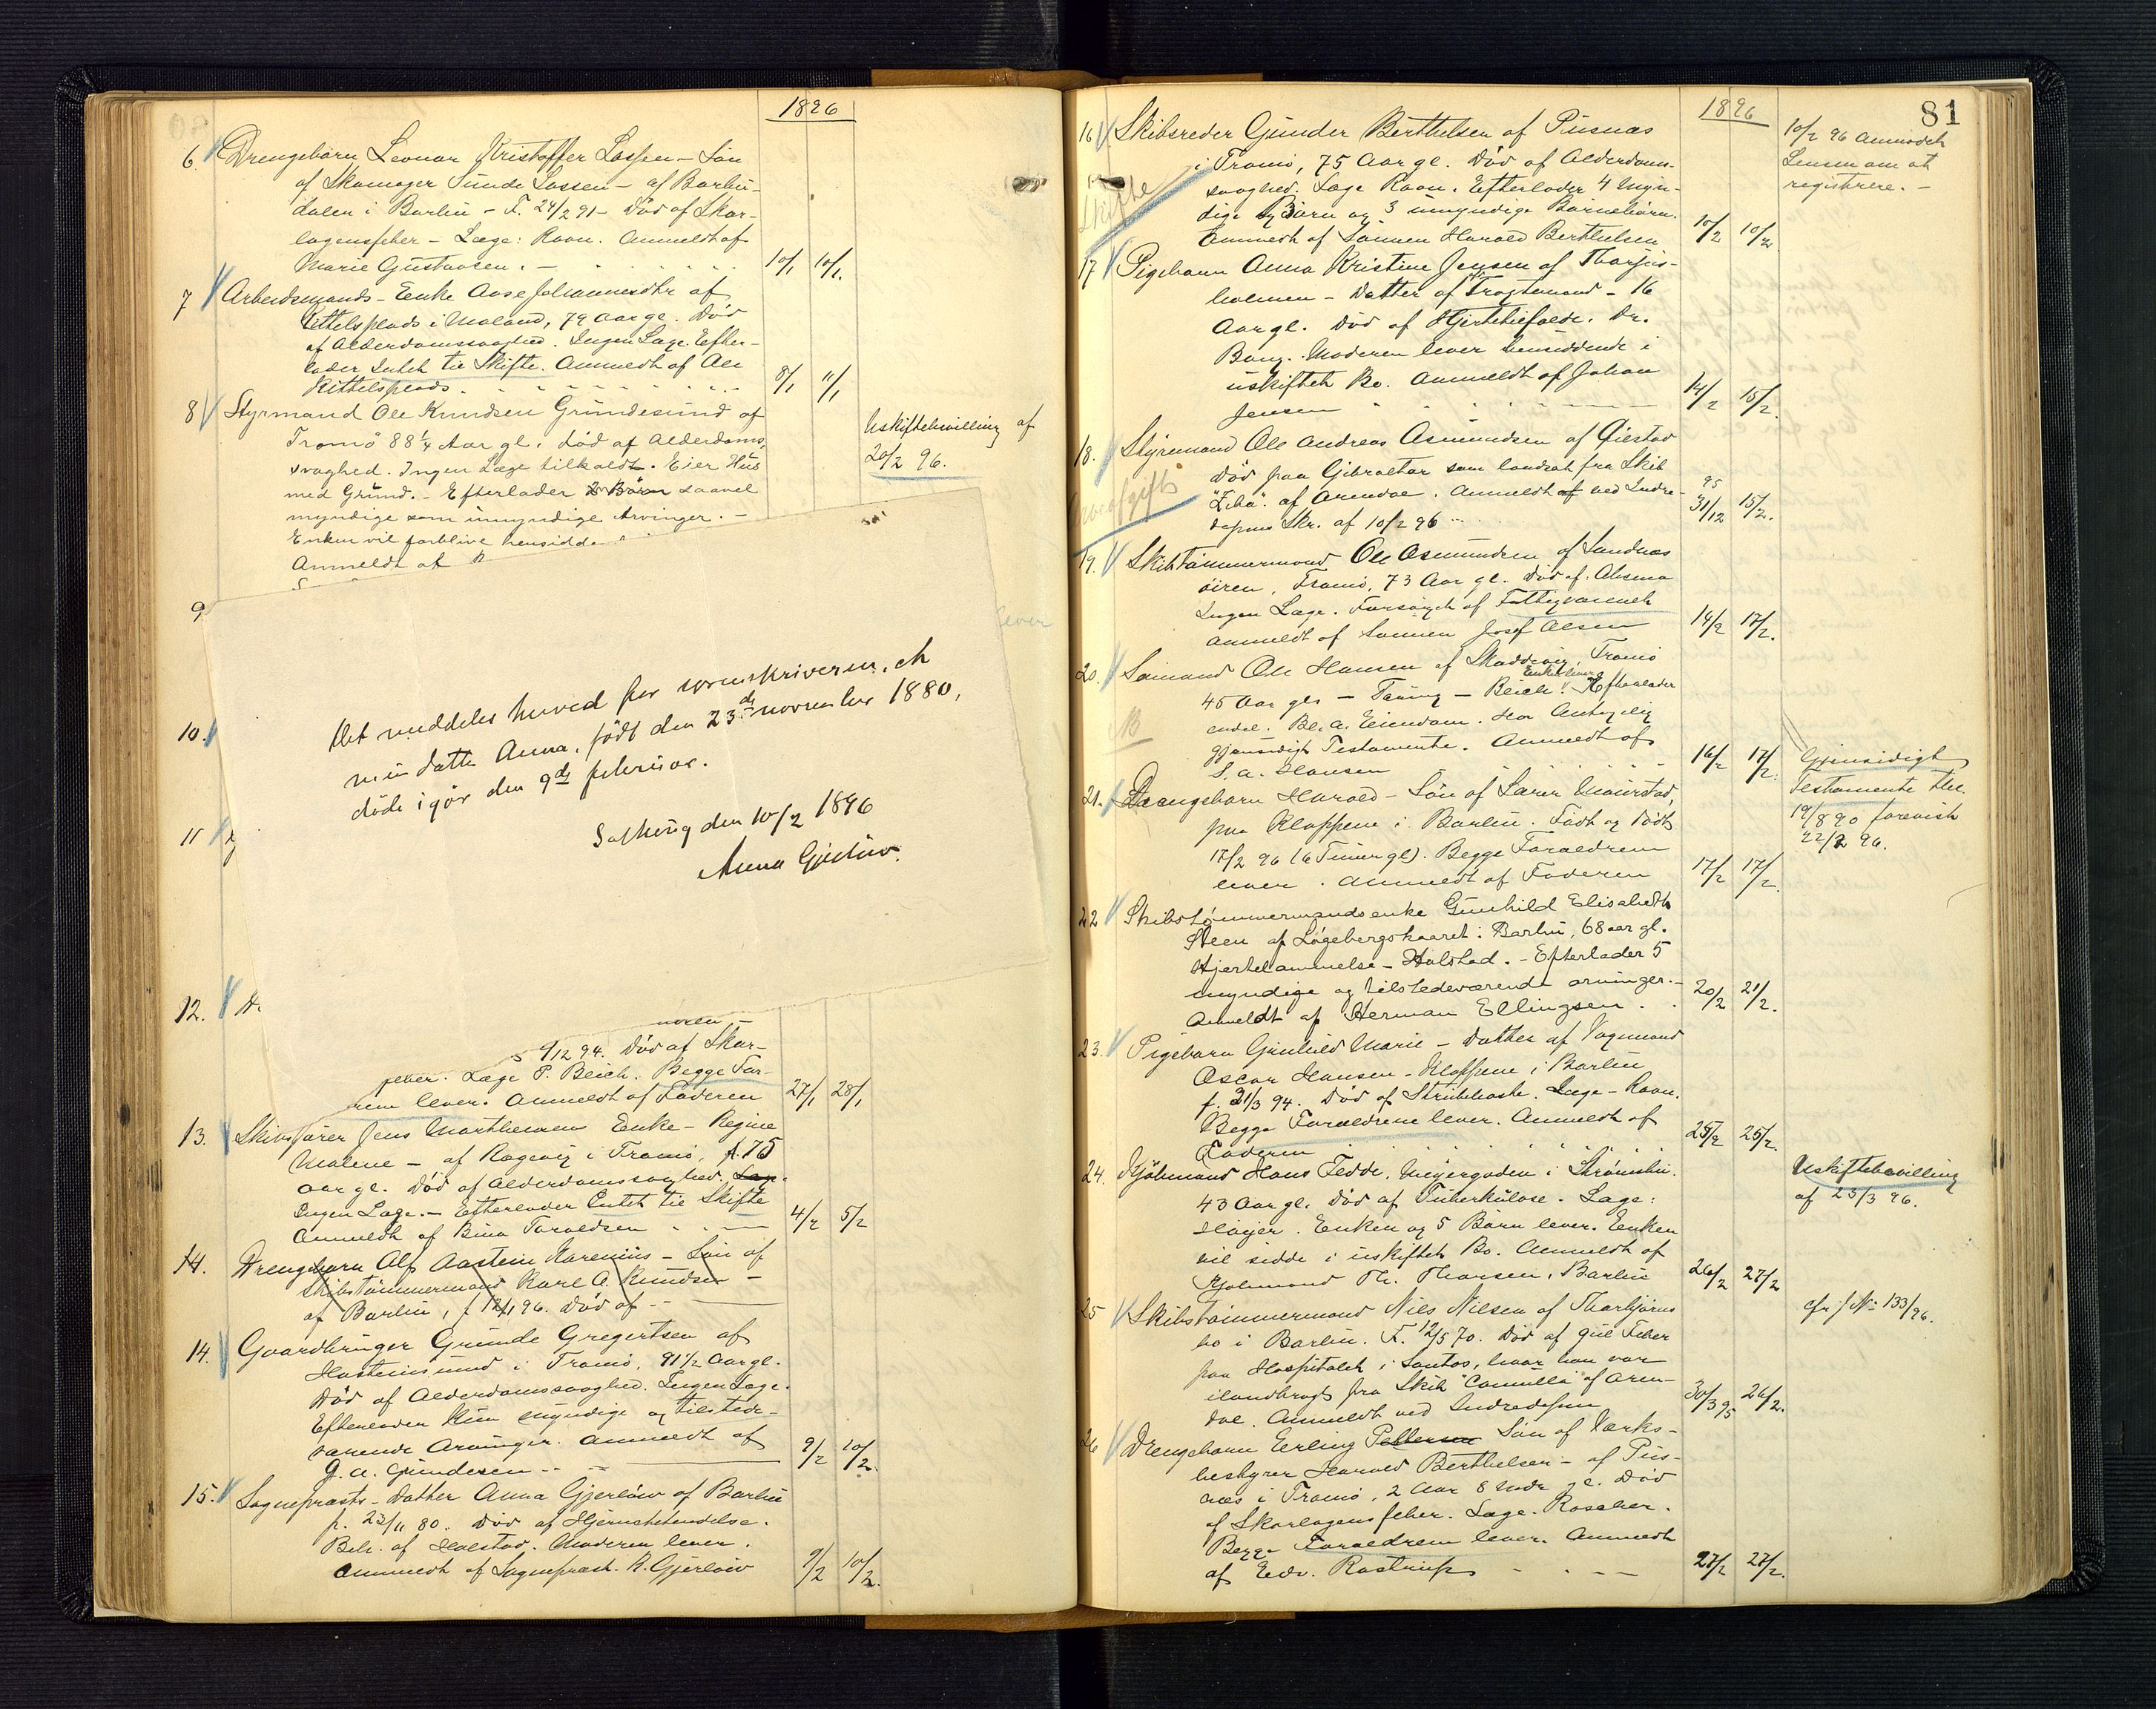 1896
6. Drengebarn Leonar Kristoffer Lassen – Søn
af Skomager Sunde Lassen – af Barbu-
dalen i Barbu – F. 24/2 91 – Død af Skar-
lagensfeber – Læge: Raan. Anmeldt af
Marie Gustavsen. – 10/1 10/1.
7 Arbeidsmands-Enke Aase Johannesdtr af
Kittelsplads i Moland, 79 Aar gl. Død
af Alderdomssvaghed. Ingen Læge. Efter-
lader Intet til Skifte. Anmeldt af Ole
Kittelsplads. 8/1 11/1
8 Styrmand Ole Knudsen Gründesund af
Tromø 88 1/4 Aar gl. død af Alderdoms-
svaghed. Ingen Læge tilkaldt. Eier Hus
med Grund. – Efterlader Børn saavel
myndige som umyndige Arvinger. –
Enken vil forblive hensidde
Anmeldt af
Uskiftebevilling af
20/2 96.
9
lever
10.
11
12.
Det meddeles herved hr sorenskriveren, at
min datter Anna, født den 23de november 1880,
døde igår den 9de februar.
Solhaug den 10/2 1896
Anna Gjerløw.
9/12 94. Død af Skar-
feber. Læge P. Beich. Begge For-
rene lever. Anmeldt af Faderen 27/1 28/1
13. Skibsfører Jens Marthensen Enke – Regine
Malene – af Ragevig i Tromø, f. 75
Aar gl. Død af Alderdomssvaghed. Læge.
Ingen Læge. – Efterlader Intet til Skifte
Anmeldt af Bina Taraldsen 4/2 5/2
14. Drengebarn Alf Aastein Karenius – Søn af
Skibstømmermand Karl A. Knudsen –
af Barbu, f. 12/1 96. Død af –
14. Gaardbruger Gunde Gregertsen af
Hastensund i Tromø, 91 1/2 Aar gl.
Død af Alderdomssvaghed. Ingen Læge.
Efterlader kun myndige og tilstede-
værende Arvinger. Anmeldt af
G. A. Gundersen 9/2 10/2.
15. Sogneprests-Datter Anna Gjerløw af Barbu
f. 23/11 80. Død af Hjernebetændelse.
Beh. af Holstad. Moderen lever.
Anmeldt af Sogneprest N. Gjerløw 9/2 10/2.
81
1896
16 Skibsreder Gunder Berthelsen af Pusnæs
i Tromø, 75 Aar gl. Død af Alderdom-
svaghed. Læge Raan. Efterlader 4 Myn-
dige Børn og 3 umyndige Børnebørn.
Anmeldt af Sønnen Harald Berthelsen 10/2 10/2
Skifte
10/2 96 anmodet
Lensm om at
registrere. –
17 Pigebarn Anna Kristine Jensen af Thorjus-
holmen – Datter af Fragtemand – 16
Aar gl. Død af Hjertetilfælde. Dr.
Bang. Moderen lever hensiddende i
uskiftet Bo. Anmeldt af Johan
Jensen 14/2 15/2.
18. Styrmand Ole Andreas Asmundsen af Øiestad
Død paa Gibraltar som landsat fra Skib
"Ziba" af Arendal. Anmeldt af ved Indre-
depms Skr. af 10/2 96 95 31/12 15/2.
Arveafgift
19. Skibstømmermand Ole Osmundsen af Sandnæs
øiren, Tromø, 73 Aar gl. Død af Absma
Ingen Læge. Forsørget af Fattigvæsenet
Anmeldt af Sønnen Josef Olsen 14/2 17/2.
20. Sømand Ole Hansen af Skaddevig, Tromø
45 Aar gls – Tæring – Beich. Enken lever Efterlader
endel. Bl. a. Eiendom. Har Antagelig
gjensidigt Testamente. Anmeldt af
S. A. Hansen 16/2 17/2.
Gjensidigt
Testamente thl.
19/8 90 forevist
22/2 96.
21. Drengebarn Harald – Søn af Lars Mørstad,
paa Kloppene i Barbu. Født og Død
17/2 96 (6 Timer gl). Begge Foraeldrene
lever. Anmeldt af Faderen 17/2 17/2
22 Skibstømmermandsenke Gunhild Elisabeth
Steen af Løgebergskaaret i Barbu, 68 aar gl.
Hjertelammelse – Holstad. – Efterlader 5
myndige og tilstedeværende arvinger. –
Anmeldt af Herman Ellingsen. 20/2 21/2.
23. Pigebarn Gunhild Marie – Datter af Vognmand
Oscar Hansen – Kloppene i Barbu
f. 31/3 94. Død af Strubehoste. Læge – Raan.
Begge Forældrene lever. Anmeldt af
Faderen 25/2 25/2.
24. Kjøbmand Hans Fedde, Meyergaden i Strømsbu.
43 Aar gl. Død af Tuberkulose. Læge:
Høyer. Enken og 5 Børn lever. Enken
vil sidde i uskiftet Bo. Anmeldt af
Kjøbmand Th. Thorsen, Barbu 26/2 27/2
Uskiftebevilling
af 23/3 96.
25 Skibstømmermand Niels Nilsen af Thorbjørns
bo i Barbu. F. 12/5 70. Død af gul Feber
paa Hospitalet i Santos, hvor han var
ilandbragt fra Skib "Camilla" af Aren-
dal. Anmeldt ved Indredepm 30/3 95 26/2.
cfr. J No 133/96.
26 Drengebarn Erling Pettersen Søn af Værks-
bestyrer Harald Berthelsen – af Pus-
næs i Tromø, 2 Aar 8 Mdr gl. Død
af Skarlagensfeber. Læge. Roscher.
Begge Foraeldrene lever. Anmeldt
af Edv. Rostrup 27/2 27/2.